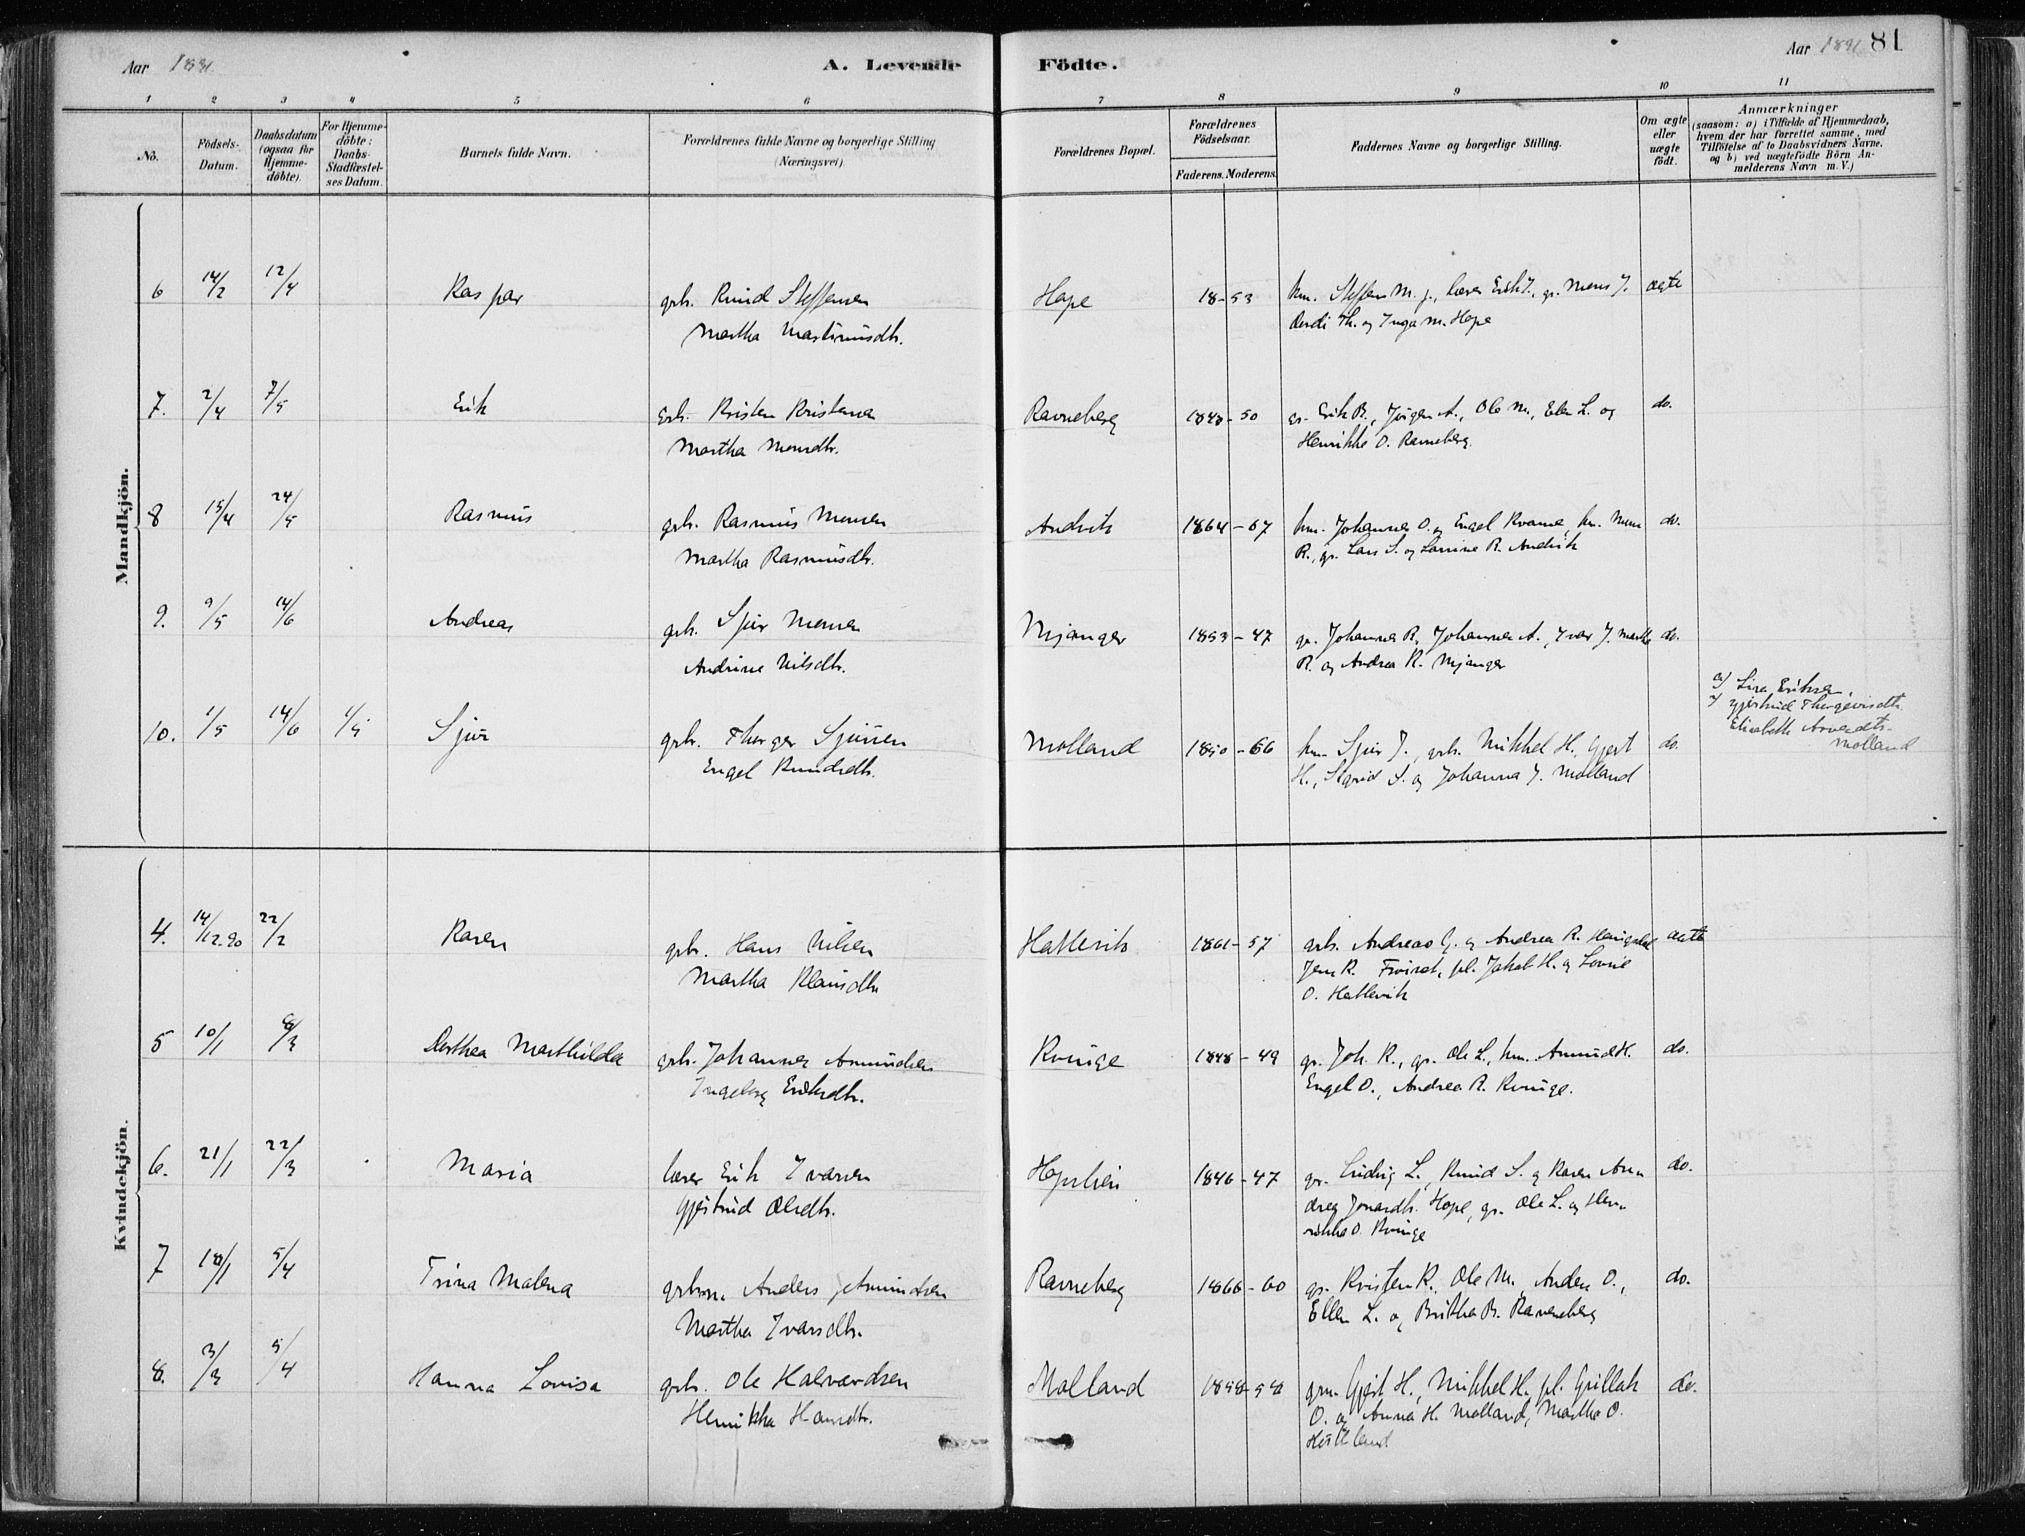 Aar 1891.
A. Levende Födte.
Aar 1891 81
1 2 3 4 5 6 7 8 9 10 11
No.
Födsels-Datum.
Daabsdatum (ogsaa for Hjemme-döbte).
For Hjemme-döbte: Daabs-Stadfæstel-ses Datum.
Barnets fulde Navn.
Forældrenes fulde Navne og borgerlige Stilling (Næringsvei).
Forældrenes Bopæl.
Forældrenes Födselsaar.
Faderens. Moderens.
Faddernes Navne og borgerlige Stilling.
Om ægte eller uægte födt.
Anmærkninger
(saasom: a) i Tilfælde af Hjemmedaab, hvem der har forrettet samme, med Tilföielse af to Daabsvidners Navne. og b) ved uægtefödte Börn An-melderens Navn m. V.)
Mandkjön.
6 14/2 12/4 Kaspar grb. Knud Steffensen Hope 18-53 km. Steffen M. g., lærer Erik I., gr. Mons J. ægte
Martha Martinusdtr. Gerdi Th. og Inga M. Hope
7. 2/4 7/5 Erik grb. Kristen Kristensen Ravneberg 1848-50 gr. Erik R., Jörgen A., Ole M., Ellen L. og do.
Martha Monsdtr. Henrikke O. Ravneberg.
8 15/4 24/5 Rasmus grb. Rasmus Monsen Andvik 1864-67 km. Johannes O. og Engel Kvamme, km. Mons do.
Martha Rasmusdtr. R., gr. Lars S. og Lovise R. Andvik
9. 9/5 14/6 Andreas grb. Sjur Monsen Mjanger 1853-47 gr. Johannes R., Johannes A., Ivar J. Martha do.
Andrine Nilsdtr. R. og Andrea R. Mjanger
10. 1/5 14/6 1/5 Sjur grb. Thorger Sjursen Molland 1850-66 km. Sjur T., grb. Mikkel H., Gjert do.
Engel Knudsdtr. H., Sigrid S. og Johanna J. Molland
a) Lisa Eriksen,
Gjertrud Thorgersdtr.
Elisabeth
Molland
Kvindekjön.
4. 14/12.90 22/2 Karen grb. Hans Nilsen Hatlevik 1861-57 grb. Andreas G. og Andrea R. Haugsdal ægte
Martha Klausdtr. Jens R. pl. Jakob H. og Lovise
O. Hatlevik
5 10/1 8/3 Dorthea Mathilda grb. Johannes Amundsen Kvinge 1848-49 gr. Joh. R., gr. Ole L., km. Amund H. do.
Ingeborg Eriksdtr. Engel O., Andrea R. Kvinge.
6. 21/1 22/3 Maria lærer Erik Ivarsen Hopslien 1846-47 gr. Ludvig L., Knud S. og Karen An- do.
Gjertrud Olsdtr. drea Jonasdtr. Hope, gr. Ole L. og Hen-
rikke O. Kvinge
7 18/1 5/4 Trina Malena grbsn. Anders Amundsen Ravneberg 1866-60 gr. Kristen K., Ole M., Anders O., do.
Martha Ivarsdtr. Ellen L. og Britha B. Ravneberg
8. 3/3 5/4 Hanna Lovisa grb. Ole Halvardsen Molland 1858-58 grm. Gjert H., Mikkel H., pl. O. og Anna H. Molland, Martha O. do.
Henrikka Hansdtr.